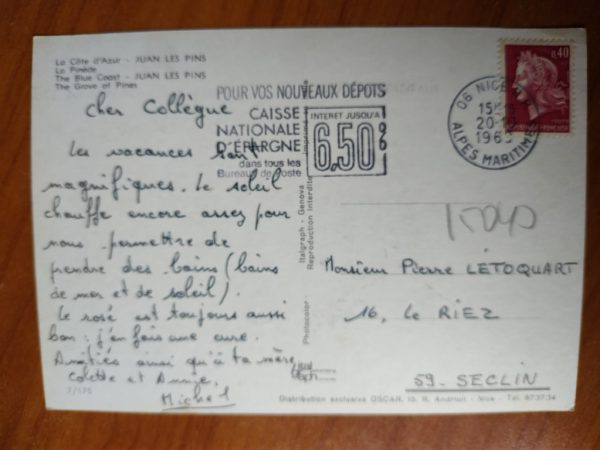 La Côte d'Azur - JUAN LES PINS
La Pinède
The Blue Coast - JUAN LES PINS
The Grove of Pines
Cher Collègue
Les vacances sont
magnifiques. Le soleil
chauffe encore assez pour
nous permettre de
prendre des bains (bains
de mer et de soleil).
Le rosé est toujours aussi
bon : j'en fais une cure.
Amitiés ainsi qu'à ta mère,
Colette et Annie.
Michel
7/175
POUR VOS NOUVEAUX DÉPOTS
CAISSE
NATIONALE
D'ÉPARGNE
dans tous les
Bureaux de Poste
INTERET JUSQU'A
6,50%
06 NICE
15H
20-10
196
ALPES MARITIMES
0,40
Photocolor Italgraph - Genova
Reproduction interdite
15040
Monsieur Pierre LETOQUART
16, Le RIEZ
59. SECLIN
Distribution exclusive OSCAR, 10, R. Andrioli - Nice - Tél. 87.37.34